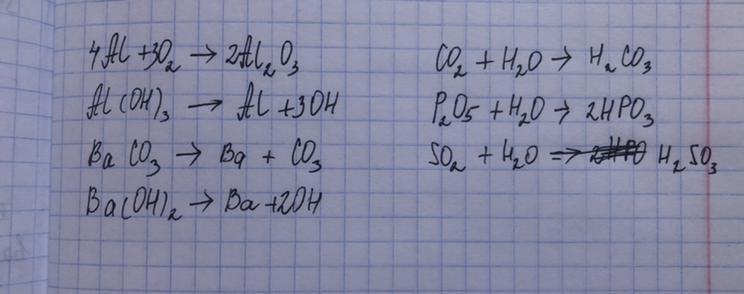 4Al + 3O₂ → 2Al₂O₃
Al(OH)₃ → Al + 3OH
BaCO₃ → Ba + CO₃
Ba(OH)₂ → Ba + 2OH
CO₂ + H₂O → H₂CO₃
P₂O₅ + H₂O → 2HPO₃
SO₂ + H₂O => H₂SO₃